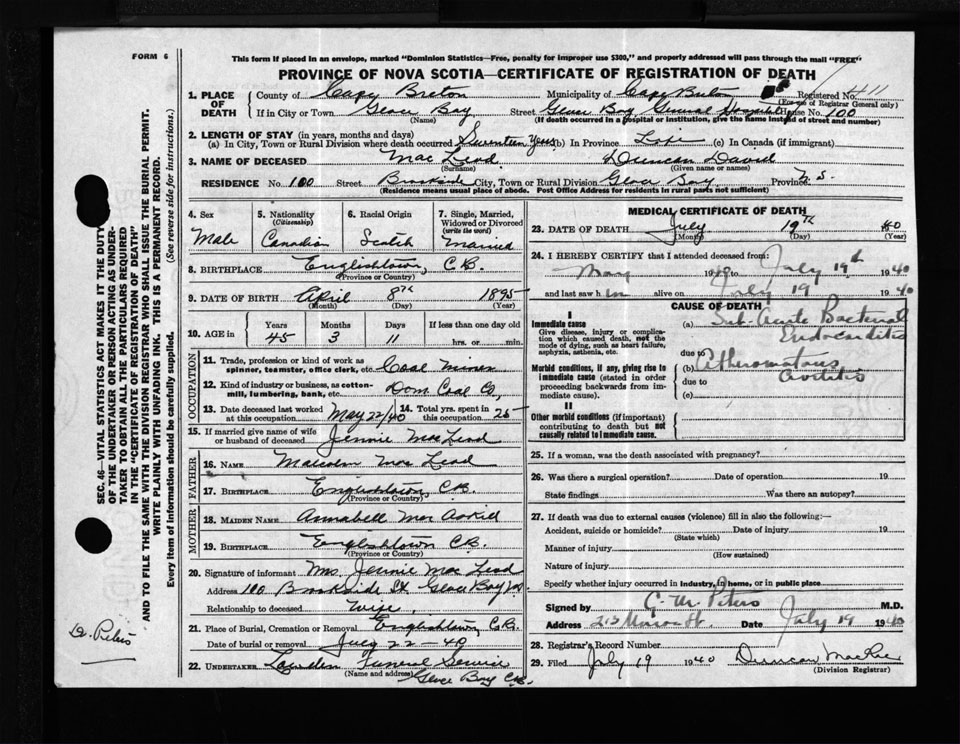 FORM 6
This form if placed in an envelope, marked "Dominion Statistics—Free, penalty for improper use $300," and properly addressed will pass through the mail "FREE"
PROVINCE OF NOVA SCOTIA—CERTIFICATE OF REGISTRATION OF DEATH
1. PLACE OF DEATH
County of Cape Breton Municipality of Cape Breton Registered No. 411
(For use of Registrar General only)
If in City or Town Glace Bay Street Glace Bay General Hospital House No. 100
(Name) (If death occurred in a hospital or institution, give the name instead of street and number)
2. LENGTH OF STAY (in years, months and days)
(a) In City, Town or Rural Division where death occurred Seventeen Years (b) In Province Life (c) In Canada (if immigrant)
3. NAME OF DECEASED Mac Leod Duncan David
(Surname) (Given name or names)
RESIDENCE No. 100 Street Brookside City, Town or Rural Division Glace Bay Province N.S.
(Residence means usual place of abode. Post Office Address for residents in rural parts not sufficient)
4. Sex
Male
5. Nationality
(Citizenship)
Canadian
6. Racial Origin
Scotch
7. Single, Married, Widowed or Divorced
(write the word)
Married
8. BIRTHPLACE Englishtown, C.B.
(Province or Country)
9. DATE OF BIRTH April 8th 1895
(Month) (Day) (Year)
10. AGE in Years Months Days If less than one day old
45 3 11 hrs. or min.
OCCUPATION
11. Trade, profession or kind of work as spinner, teamster, office clerk, etc. Coal Miner
12. Kind of industry or business, as cotton-mill, lumbering, bank, etc. Dom Coal Co,
13. Date deceased last worked at this occupation May 22/40 14. Total yrs. spent in this occupation 25
15. If married give name of wife or husband of deceased Jennie Mac Leod
FATHER
16. NAME Malcolm Mac Leod
17. BIRTHPLACE Englishtown, C.B.
(Province or Country)
MOTHER
18. MAIDEN NAME Annabell Mac
19. BIRTHPLACE Englishtown C.B.
(Province or Country)
20. Signature of informant Mrs. Jennie Mac Leod
Address 100 Brookside St Glace Bay N.S.
Relationship to deceased Wife.
21. Place of Burial, Cremation or Removal Englishtown, C.B.
Date of burial or removal July 22 40
22. UNDERTAKER Funeral Service
(Name and address)
Glace Bay C.B.
MEDICAL CERTIFICATE OF DEATH
23. DATE OF DEATH July 19th 40
(Month) (Day) (Year)
24. I HEREBY CERTIFY that I attended deceased from:
May 1940 to July 19th 1940
and last saw him alive on July 19 1940
CAUSE OF DEATH
I
Immediate cause
Give disease, injury or complication which caused death, not the mode of dying, such as heart failure, asphyxia, asthenia, etc.
(a) Sub-Acute Bacterial Endocarditis
due to
Morbid conditions, if any, giving rise to immediate cause (stated in order proceeding backwards from immediate cause).
(b) Atheromatous Aortitis
due to
(c)
II
Other morbid conditions (if important) contributing to death but not causally related to immediate cause.
25. If a woman, was the death associated with pregnancy?
26. Was there a surgical operation? Date of operation 19
State findings Was there an autopsy?
27. If death was due to external causes (violence) fill in also the following:—
Accident, suicide or homicide? Date of injury 19
(State which)
Manner of injury
(How sustained)
Nature of injury
Specify whether injury occurred in industry, in home, or in public place
Signed by G. M. Peters M.D.
Address Date July 19 1940
28. Registrar's Record Number
29. Filed July 19 1940 Duncan
(Division Registrar)
SEC. 46—VITAL STATISTICS ACT MAKES IT THE DUTY
OF THE UNDERTAKER OR PERSON ACTING AS UNDER-
TAKER TO OBTAIN ALL THE PARTICULARS REQUIRED
IN THE "CERTIFICATE OF REGISTRATION OF DEATH"
AND TO FILE THE SAME WITH THE DIVISION REGISTRAR WHO SHALL ISSUE THE BURIAL PERMIT.
WRITE PLAINLY WITH UNFADING INK. THIS IS A PERMANENT RECORD.
Every item of information should be carefully supplied. (See reverse side for instructions.)
Dr. Peters